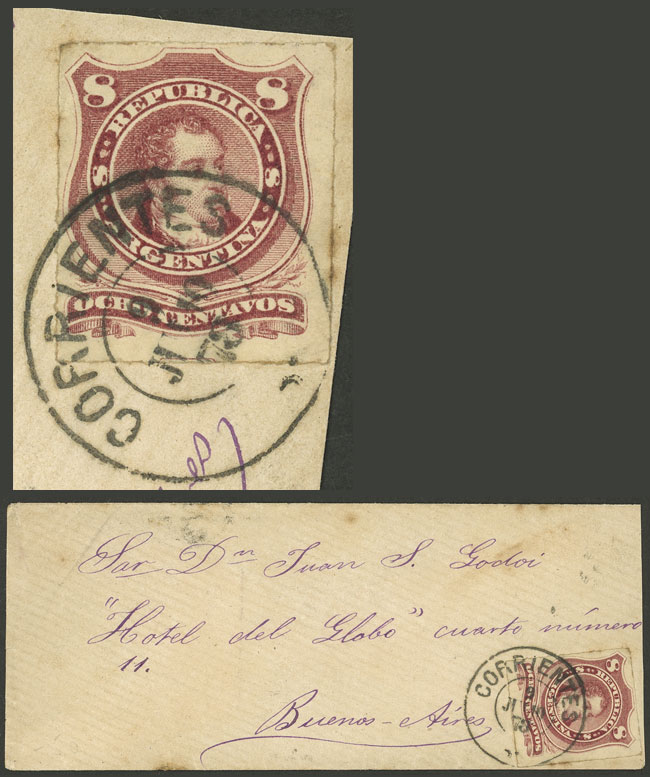 8 8
REPUBLICA
8 8
ARGENTINA
OCHO CENTAVOS
CORRIENTES
9
JUNIO
Sor Dn Juan S. Godoi
"Hotel del Globo" cuarto número
11.
Buenos-Aires
CORRIENTES
9
8 8
REPUBLICA
8 8
ARGENTINA
OCHO CENTAVOS